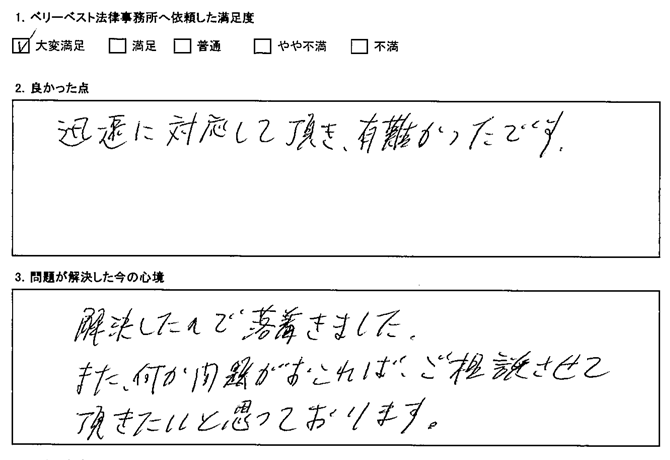 1. ベリーベスト法律事務所へ依頼した満足度
☑ 大変満足 □ 満足 □ 普通 □ やや不満 □ 不満
2. 良かった点
迅速に対応して頂き、有難かったです。
3. 問題が解決した今の心境
解決したので落着きました。
また、何か問題がおこれば、ご相談させて
頂きたいと思っております。